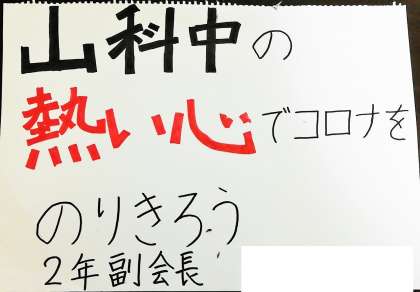 山科中の
熱い心でコロナを
のりきろう
2年副会長